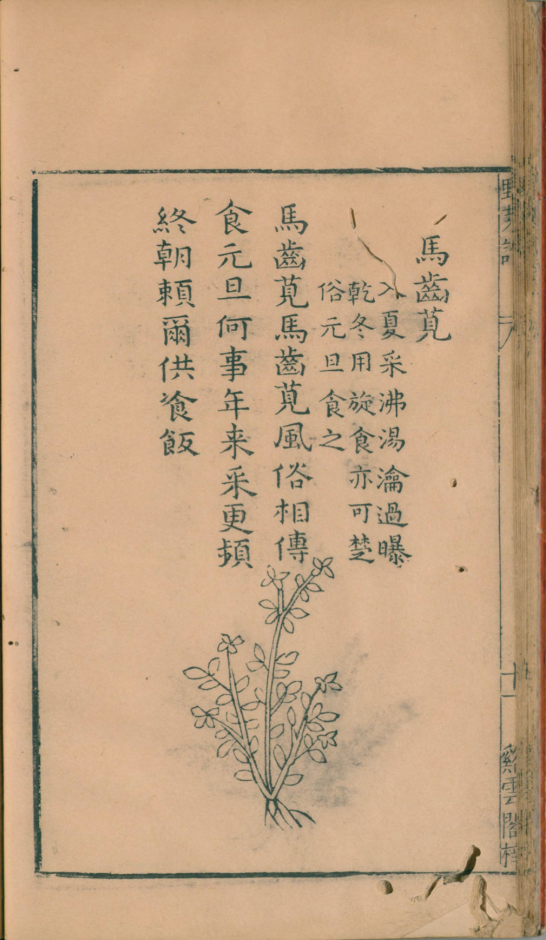 馬齒莧
入夏采沸湯瀹過曝
乾冬用旋食亦可楚
俗元旦食之
馬齒莧馬齒莧風俗相傳
食元旦何事年来采更頻
終朝賴爾供飧飯
十一
雲閣